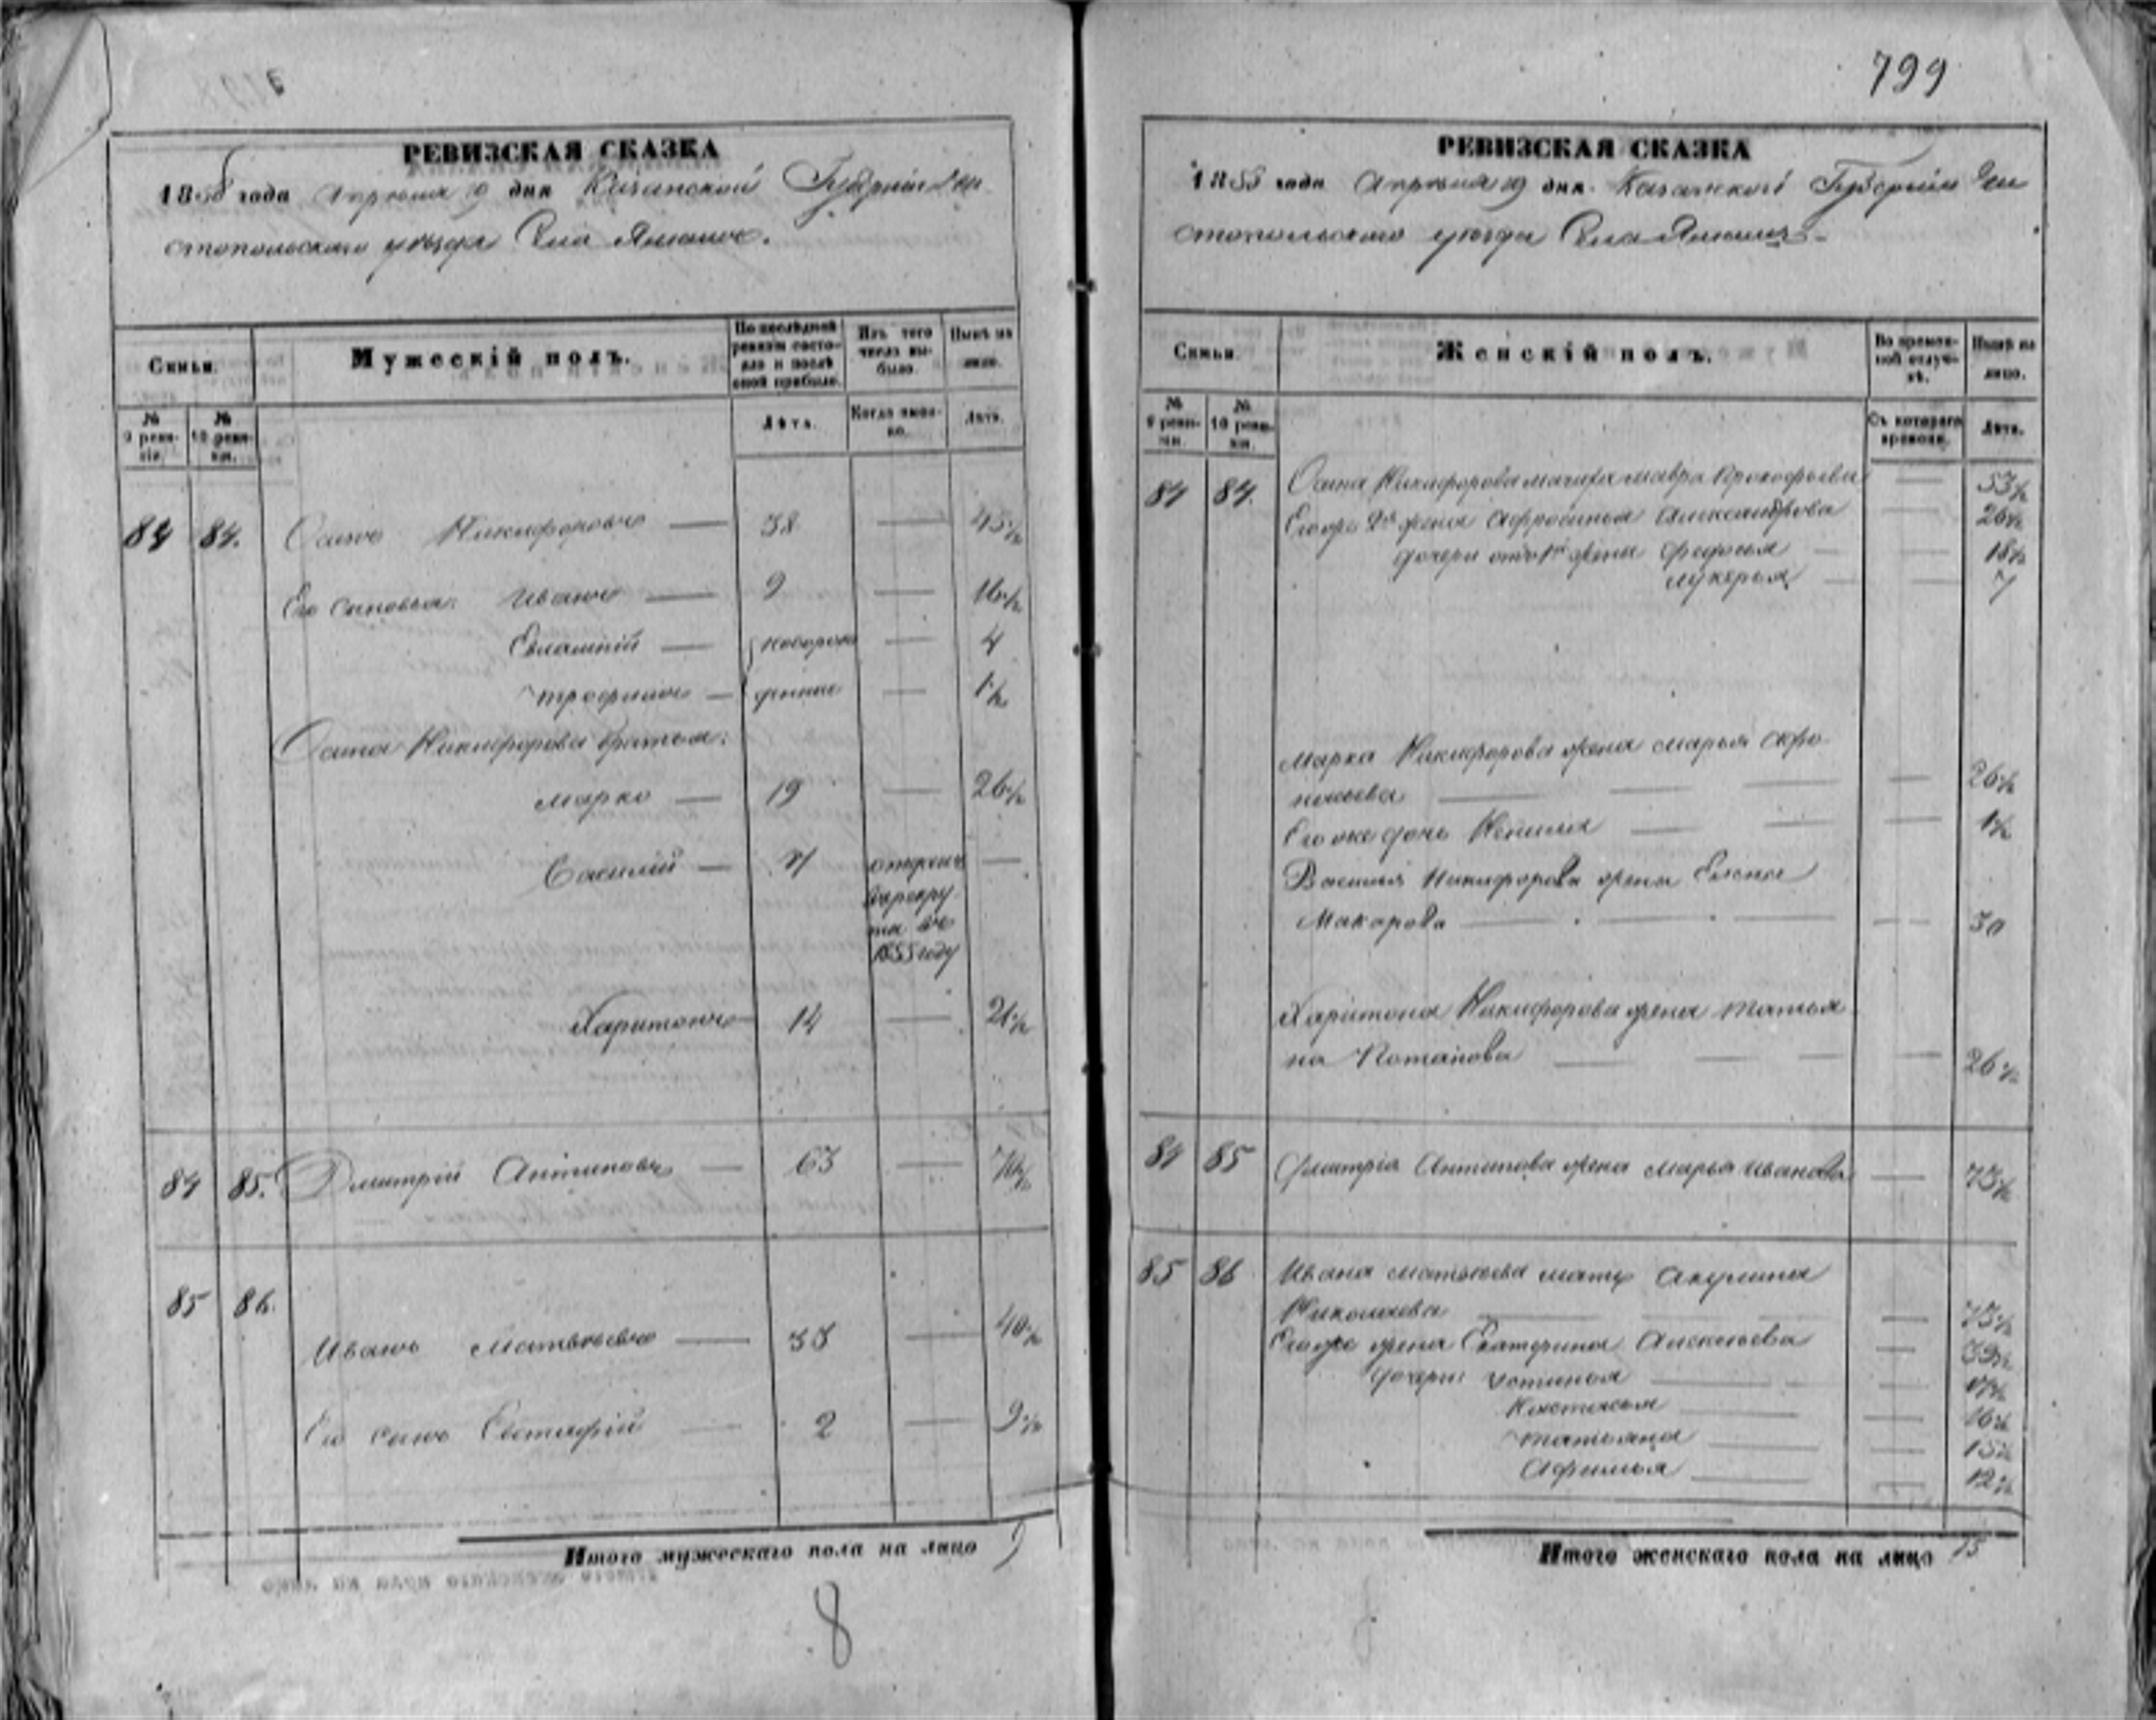 799
РЕВИЗСКАЯ СКАЗКА
1858 года Апреля 9 дня Казанской Губернии Чи
стопольскаго уезда Села
Семьи.
Мужескій полъ.
По послѣдней ревизіи состо- яло и послѣ оной прибыло.
Изъ того числа вы- было.
Нынѣ на лицо.
№ 9 реви- зіи.
№ 10 реви- зіи.
Лѣта.
Когда имен- но.
Лѣта.
84 84. Осипъ Никифоровъ — 38 — 45½
Его сыновья: Иванъ — 9 — 16½
Евлампій — новорож — 4
Трофимъ — денные — 1½
Осипа Никифорова братья:
Марко — 19 — 26½
Василій — отданъ —
в рекру
ты въ
1855 году
Харитонъ — 14 — 21½
84 85. Дмитрій Антиповъ — 63 — 70½
85 86.
Иванъ Матвѣевъ — 33 — 40½
Его сынъ Евстифій — 2 — 9½
Итого мужескаго пола на лицо 9
8
РЕВИЗСКАЯ СКАЗКА
1858 года Апреля 9 дня Казанской Губернии Чи
стопольскаго уезда Села
Семьи.
Женскій полъ.
Во времен- ной отлуч- кѣ.
Нынѣ на лицо.
№ 9 реви- зіи.
№ 10 реви- зіи.
Съ котораго времени.
Лѣта.
84 84. Осипа Никифорова мачиха Мавра Прокофьева — 53½
Его 2я жена Афросинья Александрова — 26½
дочери отъ 1й жены — 18½
Лукерья — 7
Марка Никифорова жена Марья Афо
насьева — 26½
Его же дочь — 1½
Василья Никифорова жена Елена
Макарова — 30
Харитона Никифорова жена Татья
на Потапова — 26½
84 85 Дмитрія Антипова жена Марья Иванова — 73½
85 86 Ивана Матвѣева мать Акулина
Николаева — 73½
Его же жена Екатерина Алексѣева — 39½
дочери: Устинья
Настасья — 16½
Татьяна — 15½
Афимья — 12½
Итого женскаго пола на лицо 15